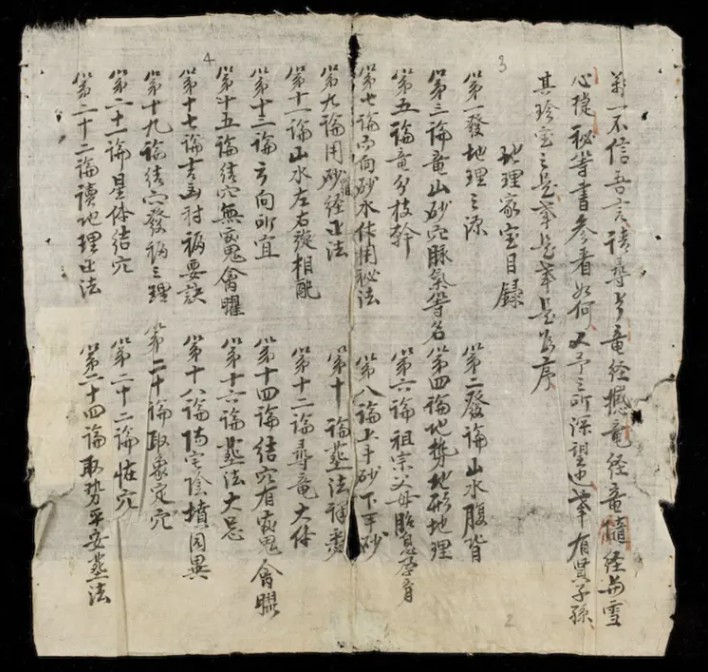 一不信吾言請尋与竜経撼竜経竜髓経与雪
心捷秘等書参看如何又予之所深望也筆有賢子孫
其珍宝之是筆是筆是為序
3
地理家宝目録
第一發地理之源 第二發論山水腹背
第三論竜山砂穴脉氣等名 第四論地勢地形地理
第五論竜分枝幹 第六論祖宗父母胎息孕育
第七論向砂水体用秘法 第八論上手砂下手砂
第九論用砂経正法 第十論葬法
第十一論山水左右旋相配 第十二論尋竜大体
第十三論方向所宜 第十四論結穴有鬼會曜
4
第十五論結穴無鬼會曜 第十六論葬法大忌
第十七論吉凶禍要訣 第十八論陽宅陰墳同異
第十九論結穴發福之理 第二十論取象定穴
第二十一論星体結穴 第二十二論怪穴
第二十三論讀地理正法 第二十四論取勢平安葬法
2